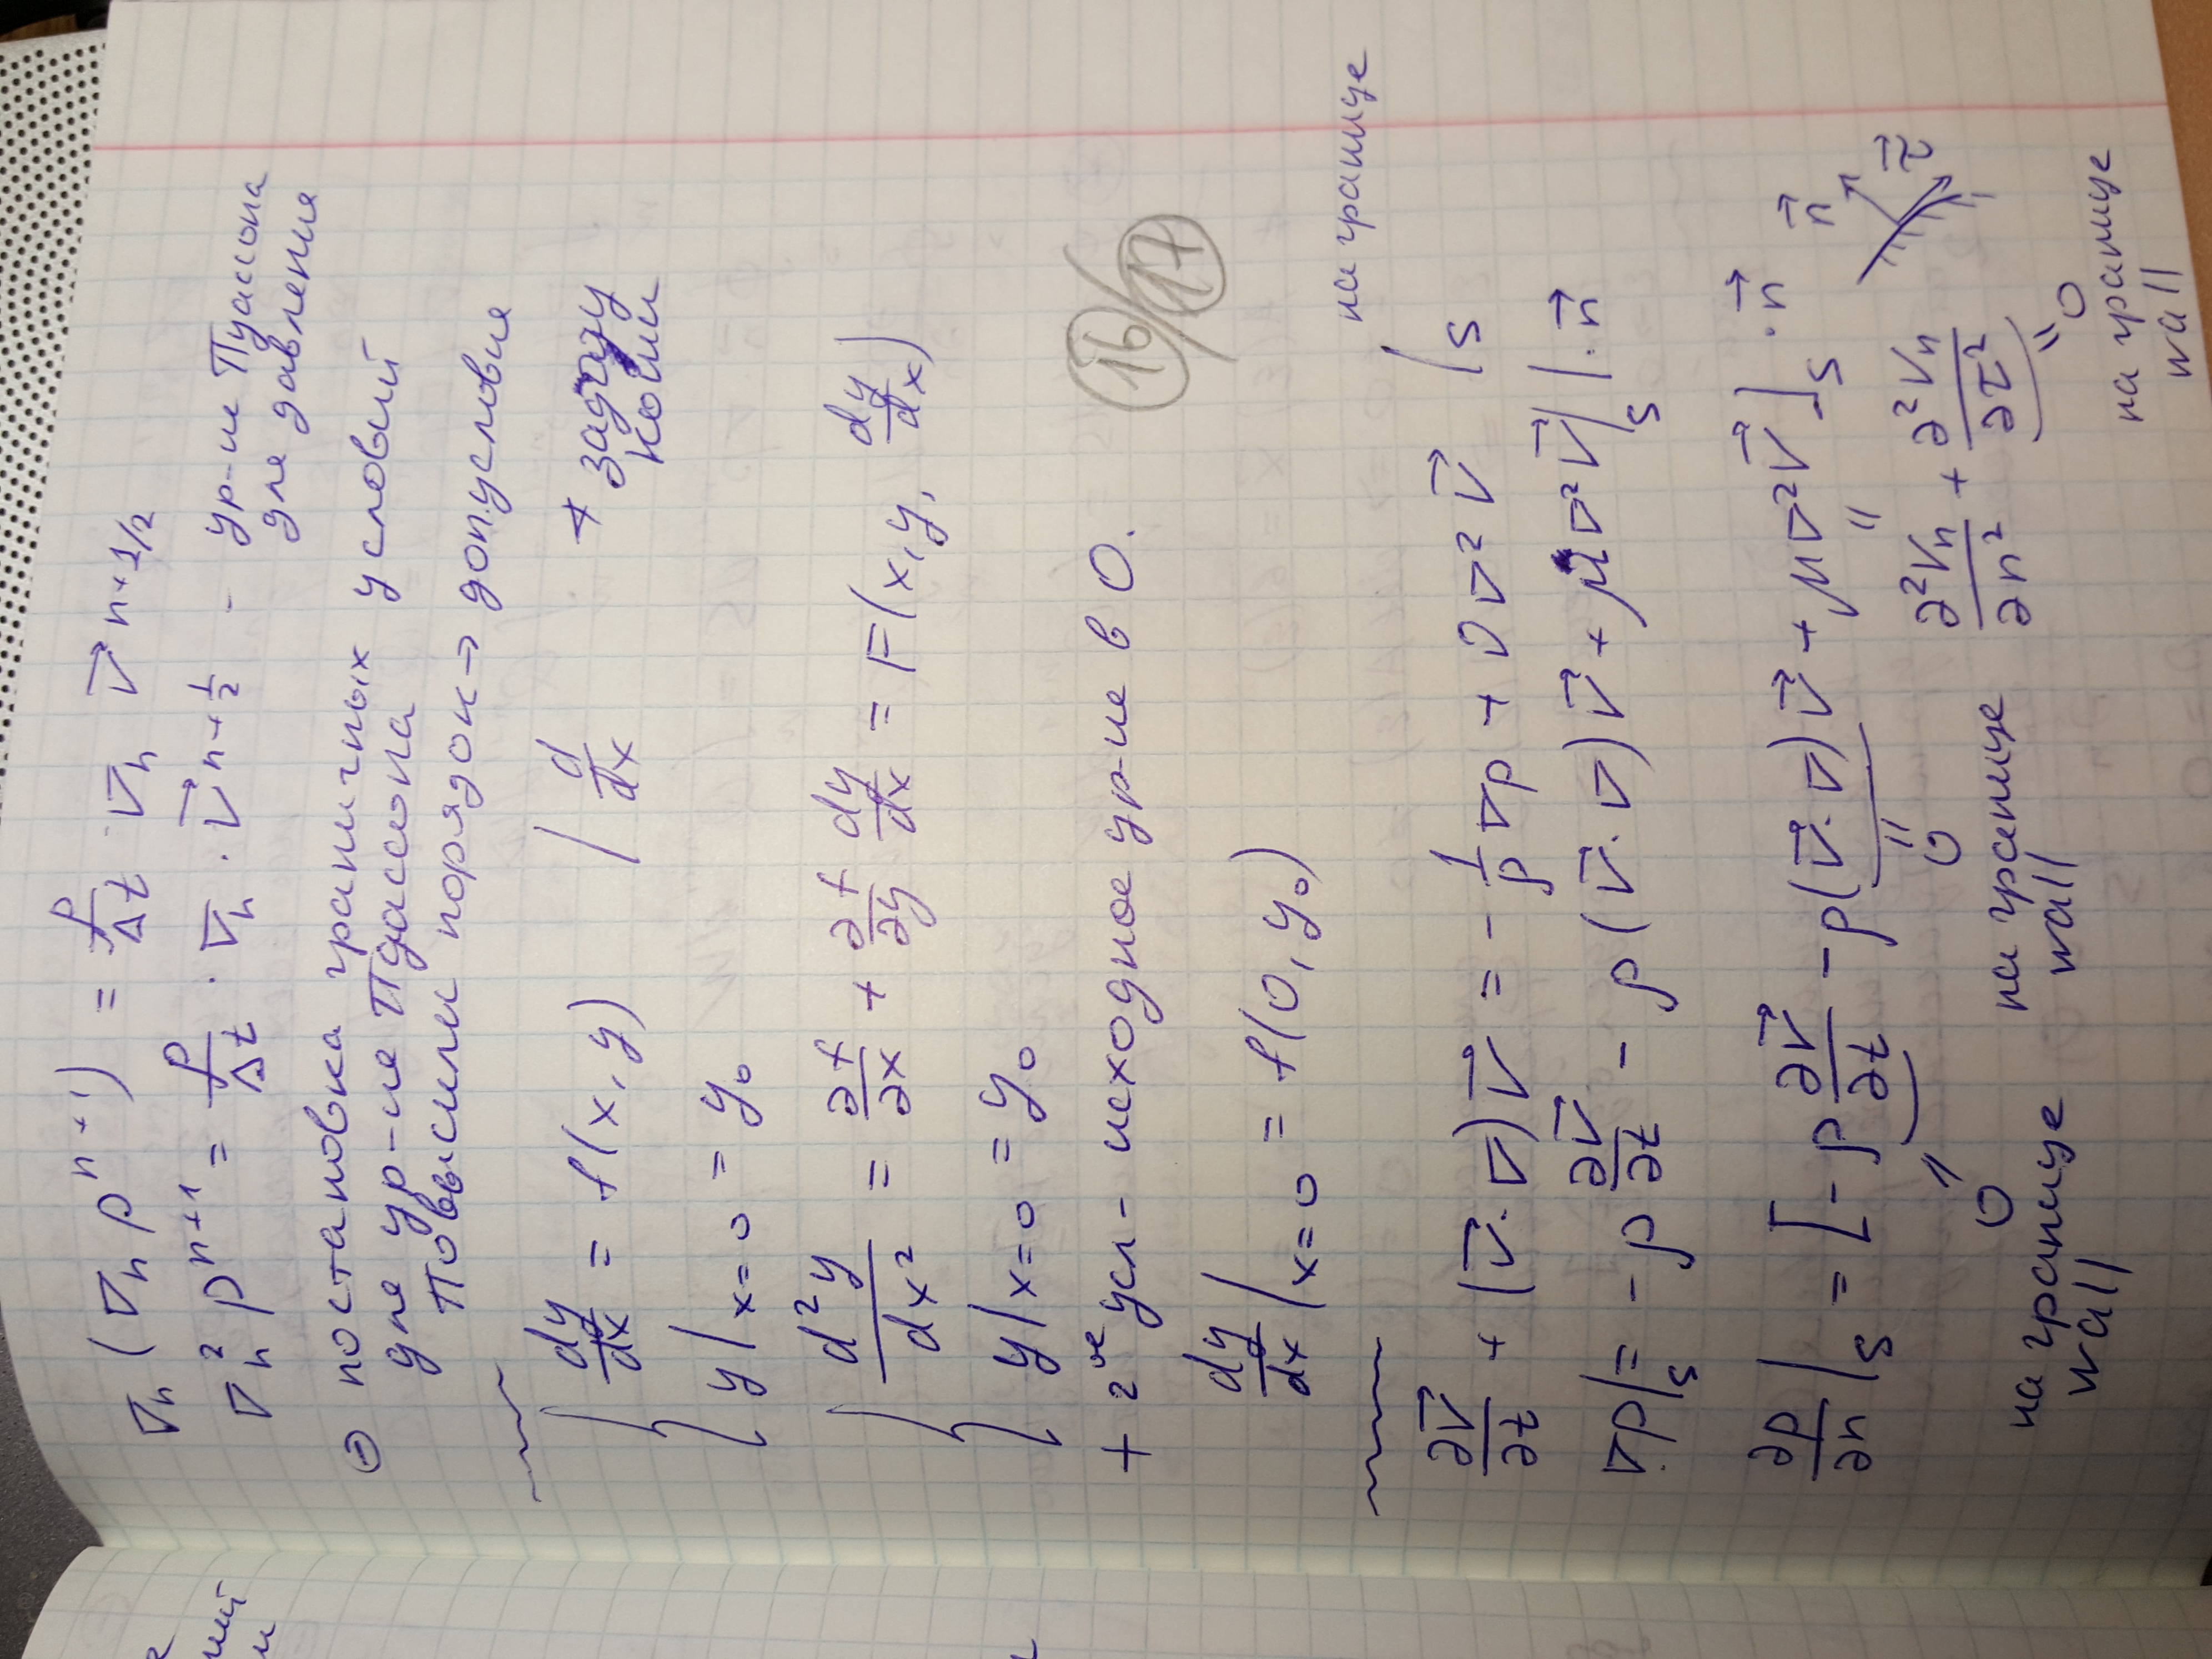 ∇ₕ (∇ₕ pⁿ⁺¹) = ρ/Δt ∇ₕ V⃗ ⁿ⁺¹/²
∇ₕ² pⁿ⁺¹ = ρ/Δt · ∇ₕ · V⃗ ⁿ⁺¹/² - ур-ие Пуассона
для давления
⊖ постановка граничных условий
для ур-ие Пуассона
Повысили порядок → доп.условие
dy/dx = f(x, y) | d/dx + задачу
Коши
y|x=0 = y₀
d²y/dx² = ∂f/∂x + ∂f/∂y dy/dx = F(x, y, dy/dx)
y|x=0 = y₀
+ 2ое усл - исходное ур-ие в 0.
16/17
dy/dx |x=0 = f(0, y₀)
на границе
∂V⃗/∂t + (V⃗·∇)V⃗ = -1/ρ ∇p + ν∇²V⃗ |S
∇p|S = -ρ ∂V⃗/∂t - ρ(V⃗·∇)V⃗ + μ∇²V⃗|S |· n⃗
∂p/∂n |S = [-ρ ∂V⃗/∂t - ρ(V⃗·∇)V⃗ + μ∇²V⃗]S · n⃗
n⃗
τ⃗
= 0
на границе
wall
= 0
на границе
wall
= ∂²Vn/∂n² + ∂²Vn/∂τ²
= 0
на границе
wall